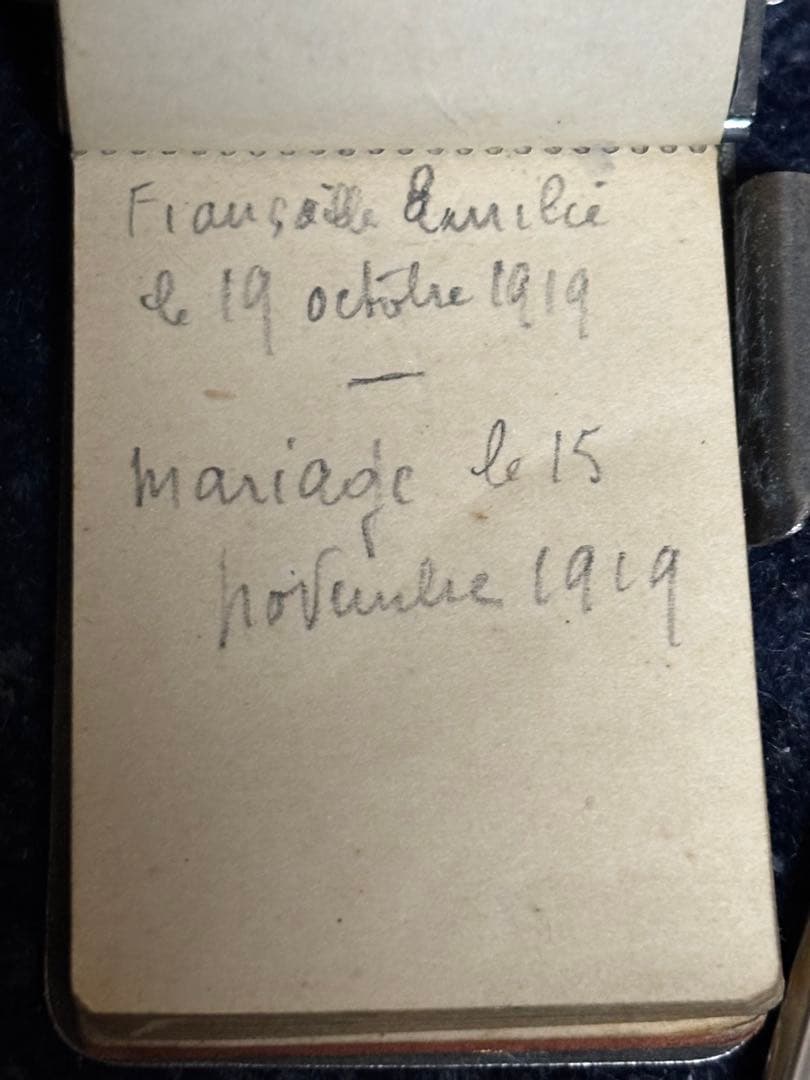 Fiançaille Emilie
le 19 octobre 1919
—
Mariage le 15
novembre 1919